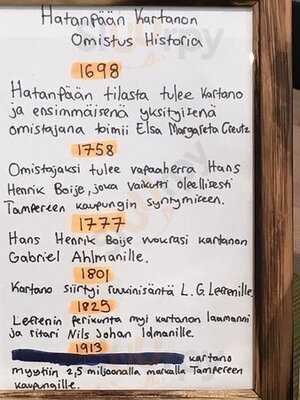 Hatanpään Kartanon
Omistus Historia
1698
Hatanpään tilasta tulee Kartano
ja ensimmäisenä yksityisenä
omistajana toimii Elsa Margareta Creutz
1758
Omistajaksi tulee vapaaherra Hans
Henrik Boije, joka vaikutti oleellisesti
Tampereen kaupungin syntymiseen.
1777
Hans Henrik Boije vuokrasi kartanon
Gabriel Ahlmanille.
1801
Kartano siirtyi ruukinisäntä L.G. Lefrenille.
1825
Lefrenin perikunta myi kartanon laamanni
ja ritari Nils Johan Idmanille.
1913
kartano
myytiin 2,5 miljoonalla markalla Tampereen
kaupungille.